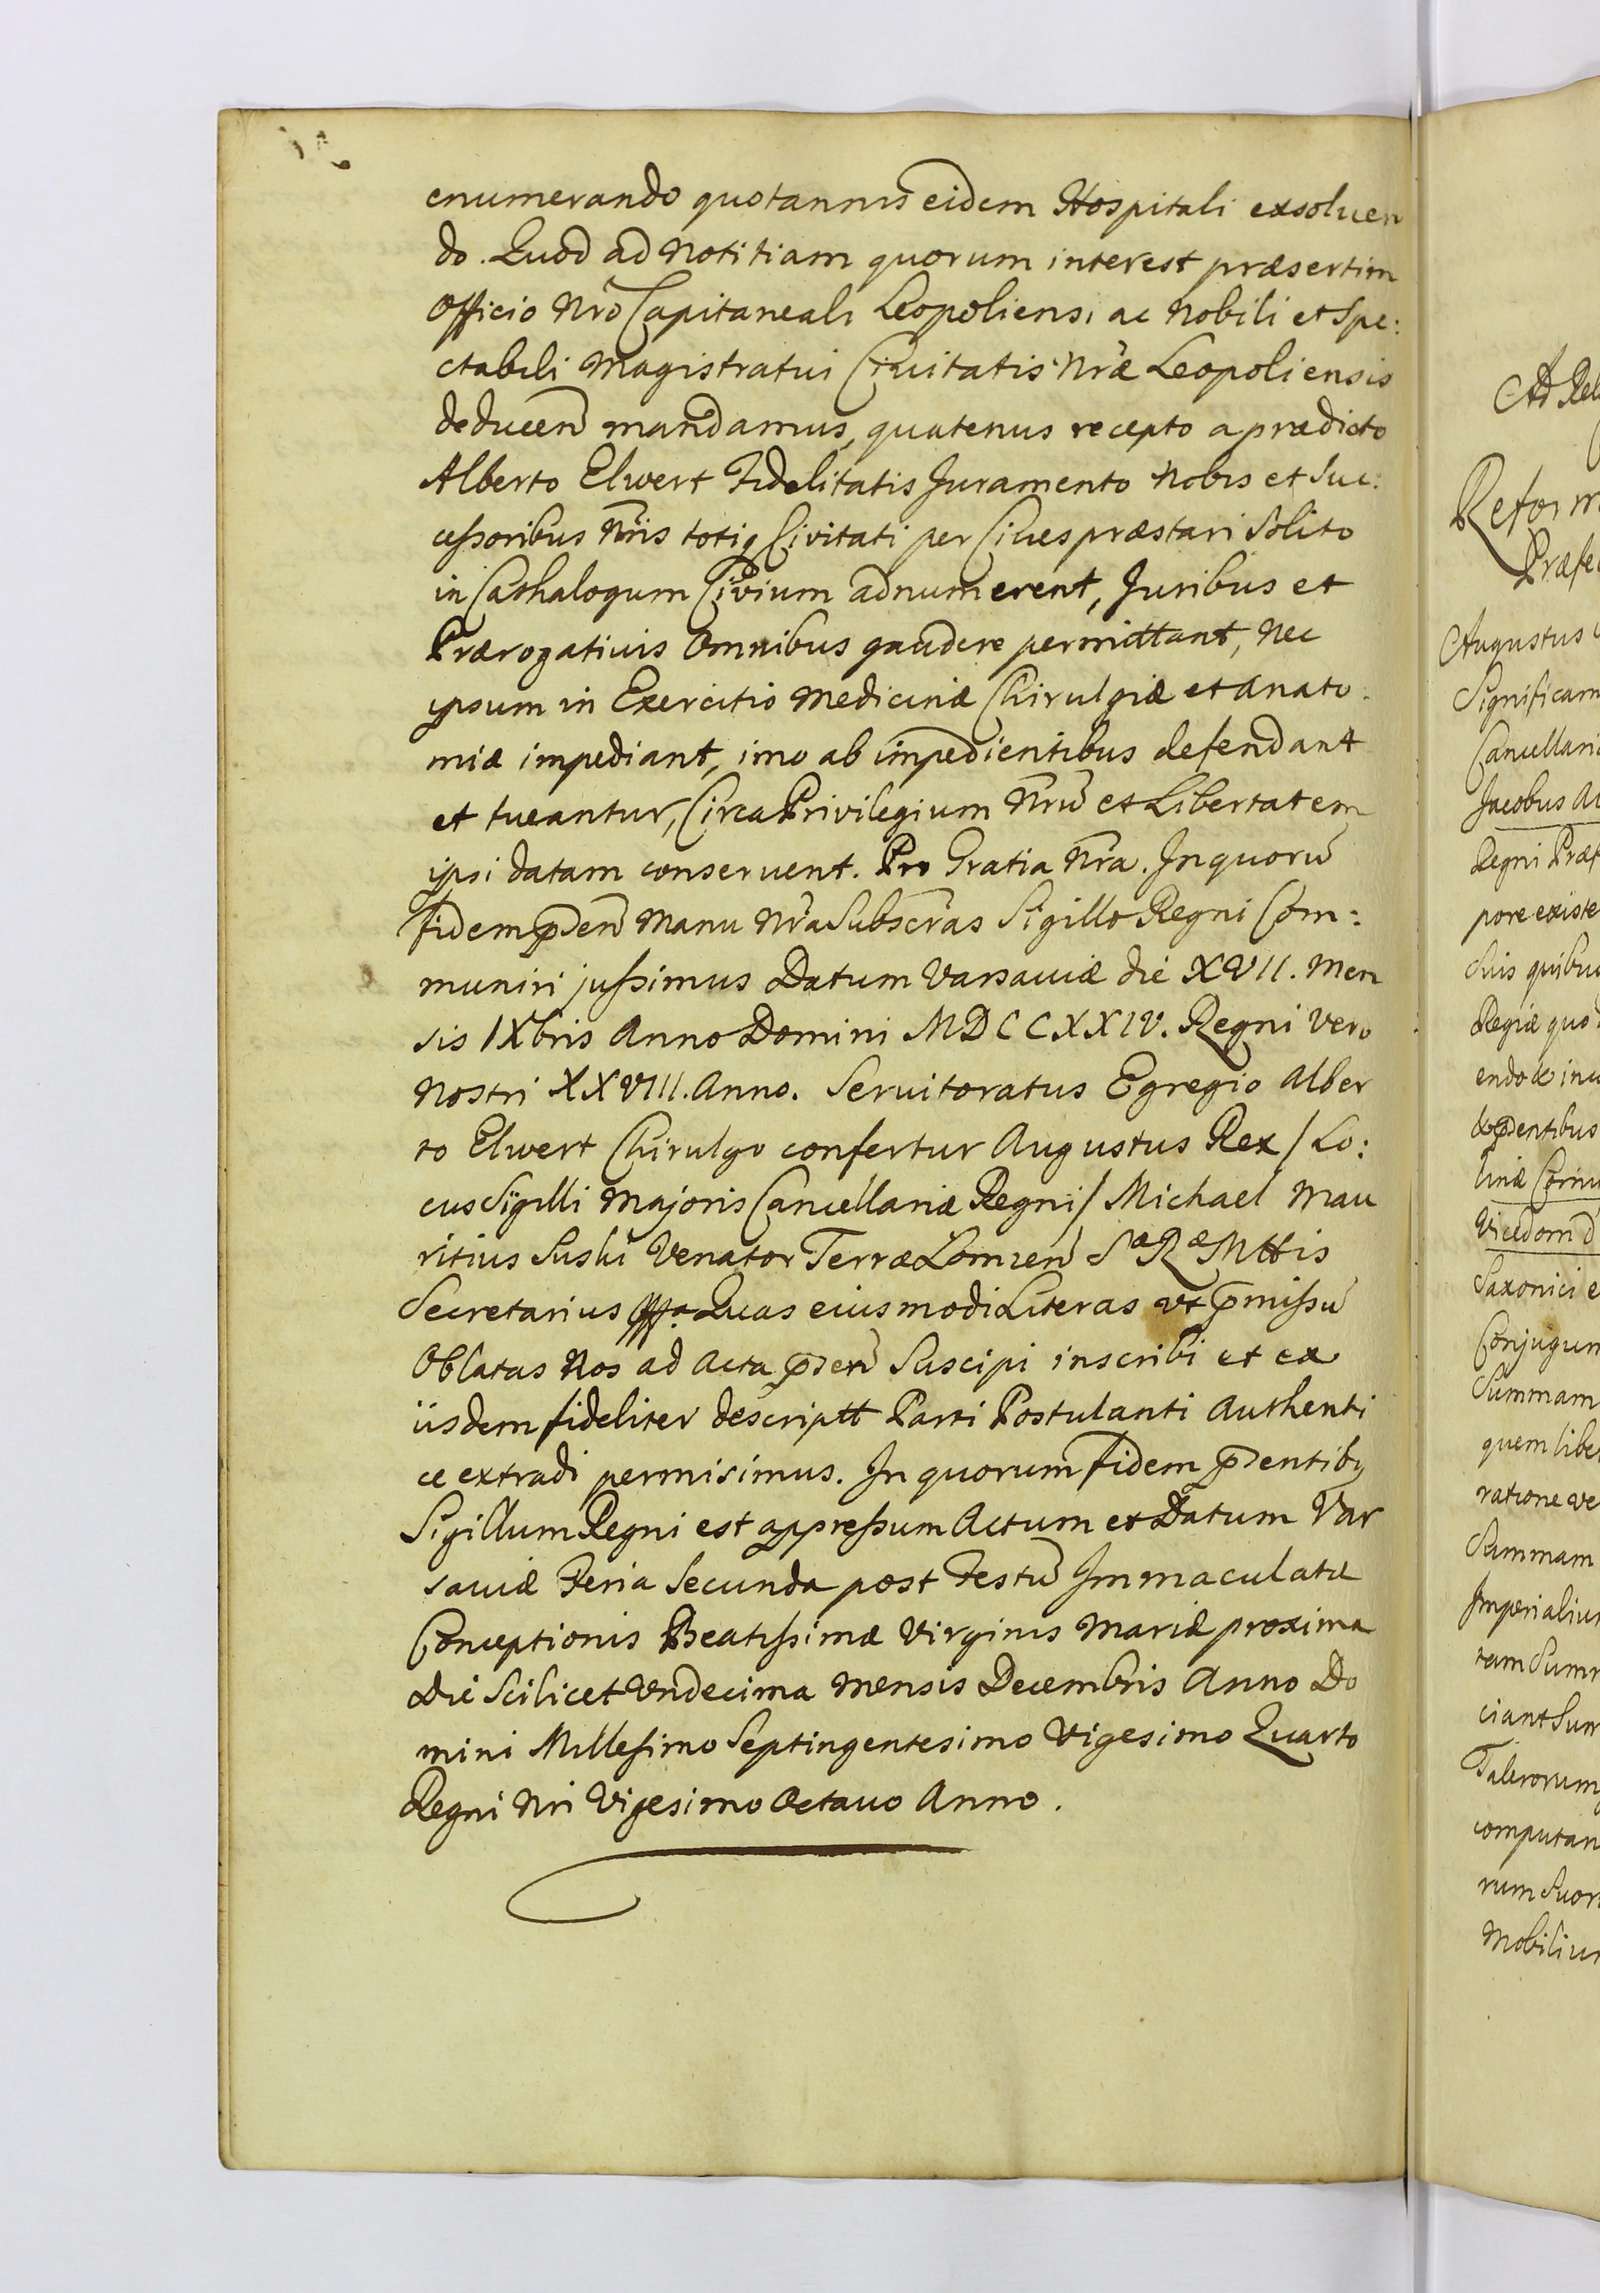 enumerando quotannis eidem Hospitali exsoluen
do. Quod ad Notitiam quorum interest præsertim
Officio Nrõ Capitaneali Leopoliensi ac Nobili et Spe:
ctabili Magistratui Ciuitatis Nræ Leopoliensis
deducen̄ mandamus, quatenus recepto a prædicto
Alberto Elwert Fidelitatis Juramento Nobis et Suc:
ceſsoribus Nr̄is totiq Civitati per Ciues præstari Solito
in Cathalogum Civium adnumerent, Juribus et
Prærogativis Omnibus gaudere permittant, Nec
ipsum in Exercitio Medicinæ Chirulgiæ et Anato:
miæ impediant, imo ab impedientibus defendant
et tueantur, Circa Privilegium Nr̄ū et Libertatem
ipsi datam conseruent. Pro Gratia Nr̄a. In quorū
fidem p̄sen̄ Manu Nr̄a Subscr̄as Sigillo Regni Com:
muniri juſsimus Datum Varsaviæ die XVII. Men
sis IXbris Anno Domini MDCCXXIV. Regni Vero
Nostri XXVIII. Anno. Servitoratus Egregio Alber
to Elwert Chirulgo confertur Augustus Rex / Lo:
cus Sigilli Majoris Cancellariæ Regni / Michael Mau
ritius Suski Venator Terræ Lomzen̄ Sæ Ræ Mttis
Secretarius Quas eiusmodi Literas vt p̄miſsū
Oblatas Nos ad Acta p̄sen̄ Suscipi inscribi et ex
iisdem fideliter descriptt Parti Postulanti Authenti
ce extradi permisimus. In quorum fidem p̄sentibq
Sigillum Regni est appreſsum Actum et Datum Var
saviæ Feria Secunda post Festū Immaculatæ
Conceptionis Beatiſsimæ Virginis Mariæ proxima
Die Scilicet Vndecima Mensis Decembris Anno Do
mini Milleſimo Septingentesimo Vigesimo Quarto
Regni Nri Vigesimo Octavo Anno.
Augustus
Significam
Cancellari
Jacobus
Regni Præf
pore existe
Suis quibu
Regiæ quo
p̄sentibus
Saxonici
Conjugum
Summam
quem libe
ratione ve
Summam
Imperialiu
tam Sum
ciant Sum
Talerorum
computan
rum Suor
Mobiliu